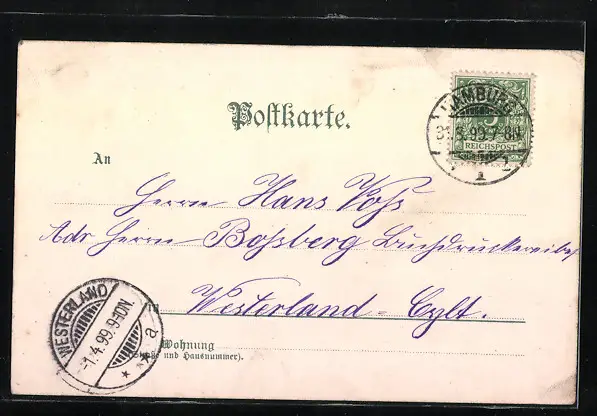 Postkarte.
HAMBURG
31.3.99.7-8N.
1
5
REICHSPOST
An
Herrn Hans Voß
Adr Herrn Boßberg Buchdruckereibes
Westerland-Sylt.
WESTERLAND
-1.4.99.9-10N.
* * a
Wohnung
(Straße und Hausnummer).